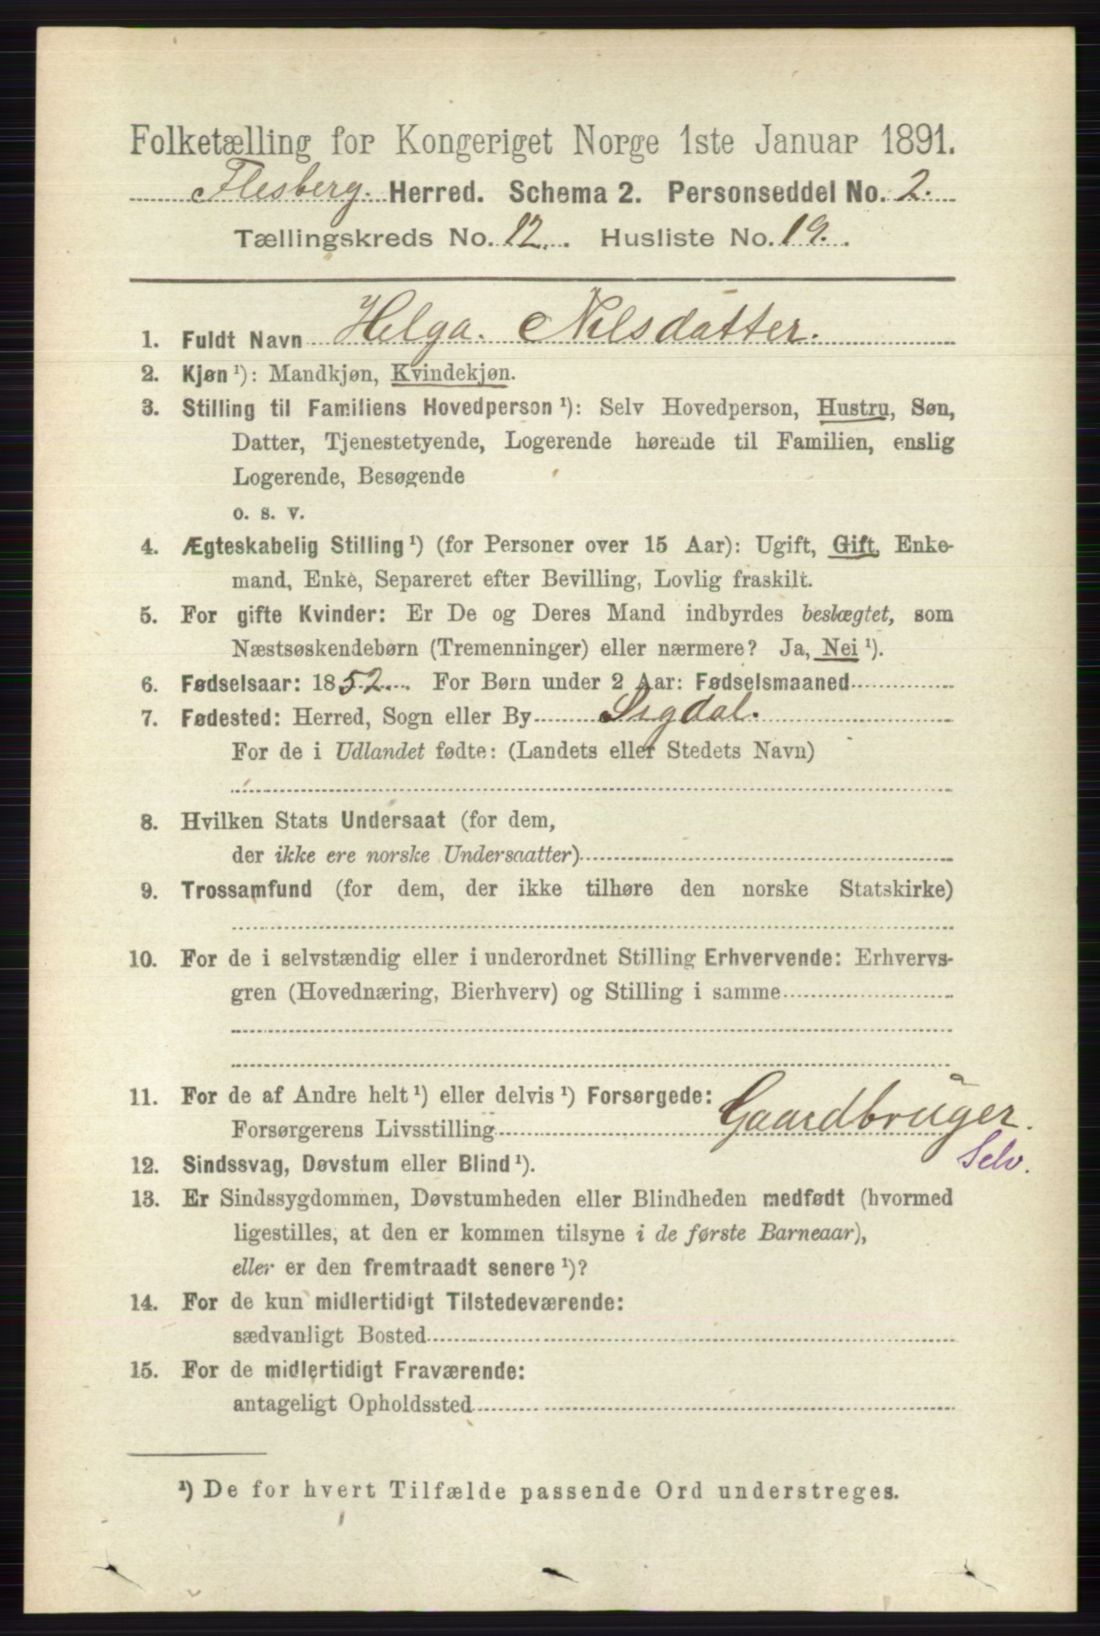 Folketælling for Kongeriget Norge 1ste Januar 1891.
Flesberg. Herred. Schema 2. Personseddel No. 2.
Tællingskreds No. 12. Husliste No. 19.
1. Fuldt Navn Helga. Nilsdatter.
2. Kjøn ¹): Mandkjøn, Kvindekjøn.
3. Stilling til Familiens Hovedperson ¹): Selv Hovedperson, Hustru, Søn,
Datter, Tjenestetyende, Logerende hørende til Familien, enslig
Logerende, Besøgende
o. s. v.
4. Ægteskabelig Stilling ¹) (for Personer over 15 Aar): Ugift, Gift, Enke-
mand, Enke, Separeret efter Bevilling, Lovlig fraskilt.
5. For gifte Kvinder: Er De og Deres Mand indbyrdes beslægtet, som
Næstsøskendebørn (Tremenninger) eller nærmere? Ja, Nei ¹).
6. Fødselsaar: 1852. For Børn under 2 Aar: Fødselsmaaned
7. Fødested: Herred, Sogn eller By Sigdal.
For de i Udlandet fødte: (Landets eller Stedets Navn)
8. Hvilken Stats Undersaat (for dem,
der ikke ere norske Undersaatter)
9. Trossamfund (for dem, der ikke tilhøre den norske Statskirke)
10. For de i selvstændig eller i underordnet Stilling Erhvervende: Erhvervs-
gren (Hovednæring, Bierhverv) og Stilling i samme
11. For de af Andre helt ¹) eller delvis ¹) Forsørgede:
Forsørgerens Livsstilling Gaardbruger.
Selv.
12. Sindssvag, Døvstum eller Blind ¹).
13. Er Sindssygdommen, Døvstumheden eller Blindheden medfødt (hvormed
ligestilles, at den er kommen tilsyne i de første Barneaar),
eller er den fremtraadt senere ¹)?
14. For de kun midlertidigt Tilstedeværende:
sædvanligt Bosted
15. For de midlertidigt Fraværende:
antageligt Opholdssted
¹) De for hvert Tilfælde passende Ord understreges.